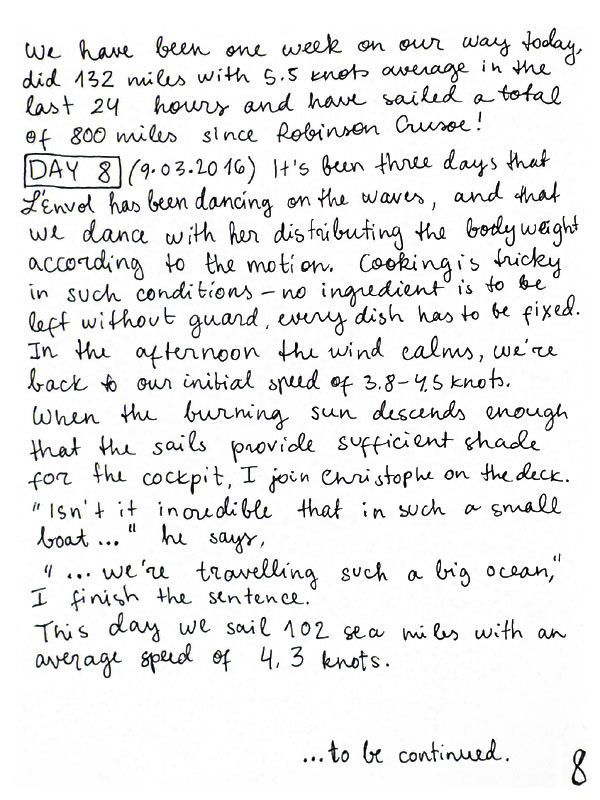 We have been one week on our way today,
did 132 miles with 5.5 knots average in the
last 24 hours and have sailed a total
of 800 miles since Robinson Crusoe!
DAY 8 (9.03.2016) It's been three days that
L'Envol has been dancing on the waves, and that
we dance with her distributing the bodyweight
according to the motion. Cooking is tricky
in such conditions – no ingredient is to be
left without guard, every dish has to be fixed.
In the afternoon the wind calms, we're
back to our initial speed of 3.8–4.5 knots.
When the burning sun descends enough
that the sails provide sufficient shade
for the cockpit, I join Christophe on the deck.
"Isn't it incredible that in such a small
boat..." he says,
"...we're travelling such a big ocean,"
I finish the sentence.
This day we sail 102 sea miles with an
average speed of 4,3 knots.
...to be continued.
8